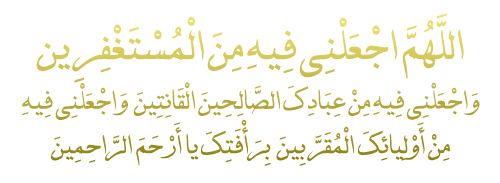 اللَّهُمَّ اجْعَلْنِی فِیهِ مِنَ الْمُسْتَغْفِرِین
وَاجْعَلْنِی فِیهِ مِنْ عِبَادِکَ الصَّالِحِینَ الْقَانِتِینَ وَاجْعَلْنِی فِیهِ
مِنْ أَوْلِیائِکَ الْمُقَرَّبِینَ بِرَأْفَتِکَ یا أَرْحَمَ الرَّاحِمِینَ